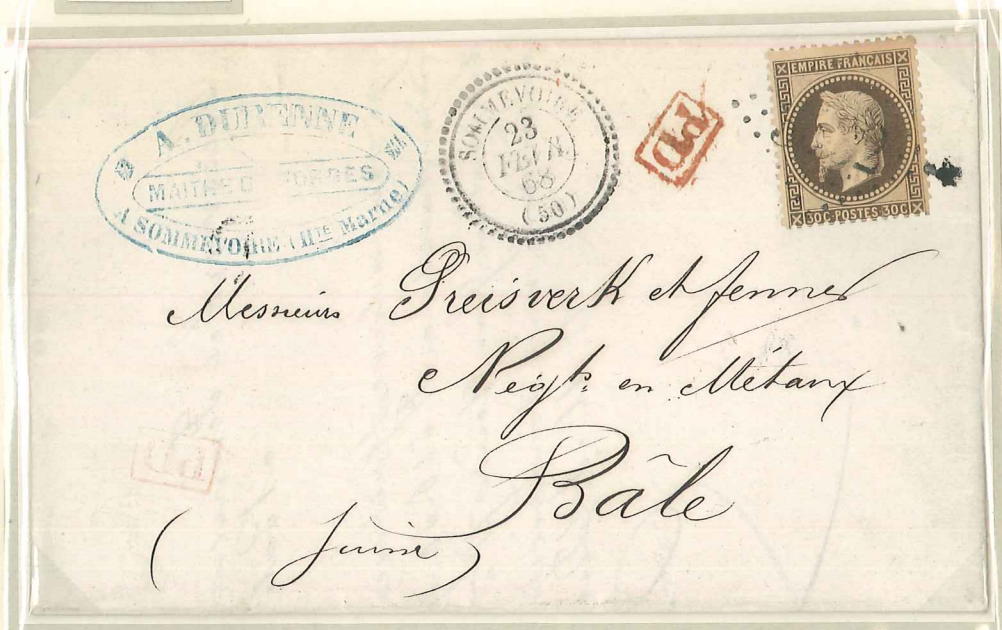 A. DURENNE
MAITRE DE FORGES
A SOMMEVOIRE (Hte Marne)
SOMMEVOIRE
23
FEVR.
68
(50)
PD
EMPIRE FRANÇAIS
30C. POSTES 30C.
Messieurs Preiswerk et fenner
Negts. en Métaux
Bâle
(Suisse)
PD